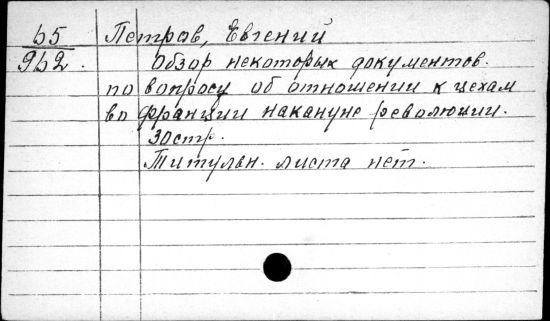 б5 Петров, Евгений
962. Обзор некоторых документов.
по вопросу об отношении к цехам
во франции накануне революции.
30 стр.
Титульн. листа нет.